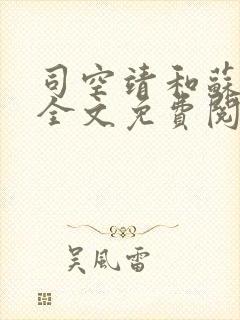 司空靖和蘇
全文免費閱
吴風雷